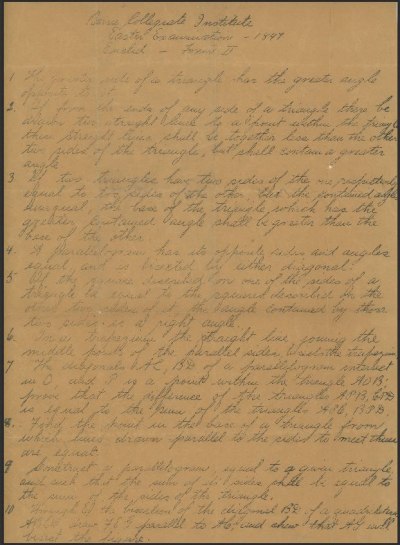 Barrie Collegiate Institute
Easter Examinations - 1897
Euclid - Form II
1 The greater side of a triangle has the greater angle
opposite to it.
2. If from the ends of any side of a triangle there be
drawn two straight lines to a point within the triangle
these straight lines shall be together less than the other
two sides of the triangle, but shall contain a greater
angle
3 If two triangles have two sides of the one respectively
equal to two sides of the other, but the contained angles
unequal the base of the triangle which has the
greater contained angle shall be greater than the
base of the other
4. A parallelogram has its opposite sides and angles
equal, and is bisected by either diagonal.
5 If the square described on one of the sides of a
triangle be equal to the squares described on the
other two sides of it, the angle contained by those
two sides is a right angle.
6. In a trapezium the straight line joining the
middle points of the parallel sides bisects the trapezium
7 The diagonals AC, BD of a parallelogram intersect
in O, and P is a point within the triangle AOB;
prove that the difference of the triangles APB, CPD
is equal to the sum of the triangles APC, BPD
8. Find the point in the base of a triangle from
which lines drawn parallel to the sides to meet them
are equal.
9 Construct a parallelogram, equal to a given triangle
and such that the sum of its sides shall be equal to
the sum of the sides of the triangle.
10 Through the bisection of the diagonal BD of a quadrilateral
draw parallel to AC and shew that AG will
bisect the figure.